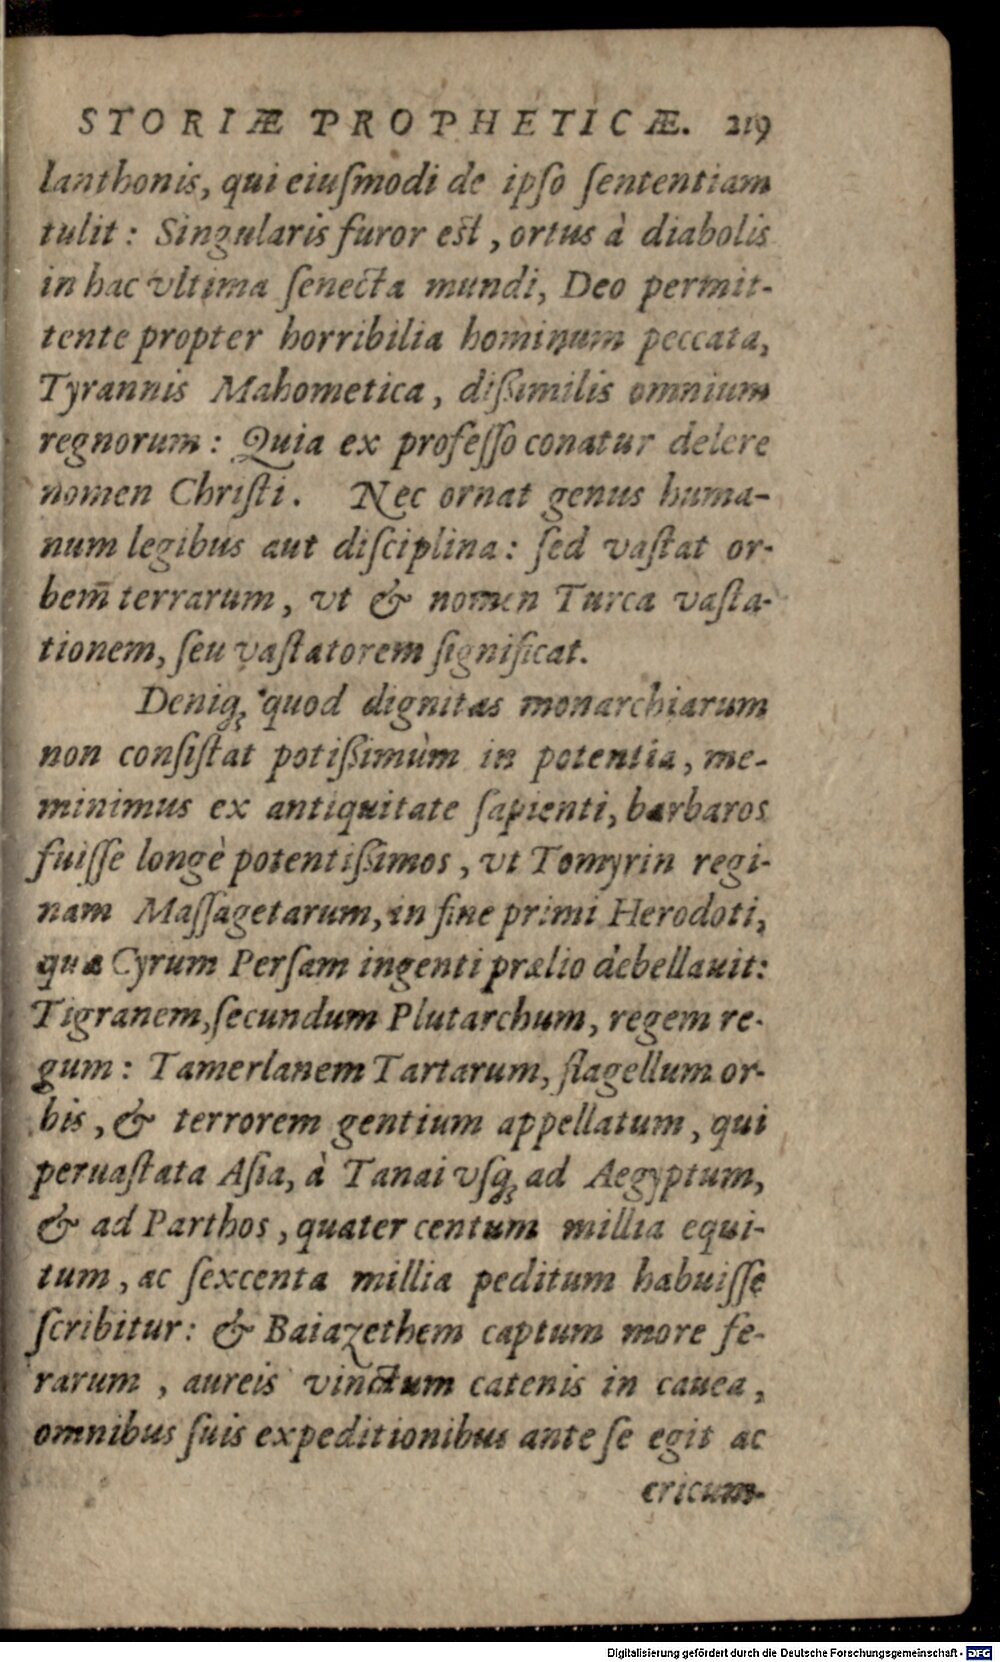 STORIÆ PROPHETICÆ. 219
lanthonis, qui eiuſmodi de ipſo ſententiam
tulit: Singularis furor eſt, ortus à diabolis
in hac vltima ſenecta mundi, Deo permit-
tente propter horribilia hominum peccata,
Tyrannis Mahometica, dißimilis omnium
regnorum: Quia ex profeſſo conatur delere
nomen Chriſti. Nec ornat genus huma-
num legibus aut diſciplina: ſed vaſtat or-
bem̄ terrarum, vt & nomen Turca vaſta-
tionem, ſeu vaſtatorem ſignificat.
Deniqꝫ quod dignitas monarchiarum
non conſiſtat potißimùm in potentia, me-
minimus ex antiquitate ſapienti, barbaros
fuiſſe longè potentißimos, vt Tomyrin regi-
nam Maſſagetarum, in fine primi Herodoti,
quæ Cyrum Perſam ingenti prælio debellauit:
Tigranem, ſecundum Plutarchum, regem re-
gum: Tamerlanem Tartarum, flagellum or-
bis, & terrorem gentium appellatum, qui
peruaſtata Aſia, à Tanai vſqꝫ ad Aegyptum,
& ad Parthos, quater centum millia equi-
tum, ac ſexcenta millia peditum habuiſſe
ſcribitur: & Baiazethem captum more fe-
rarum, aureis vinctum catenis in cauea,
omnibus ſuis expeditionibus ante ſe egit ac
cricum-
Digitalisierung gefördert durch die Deutsche Forschungsgemeinschaft - DFG